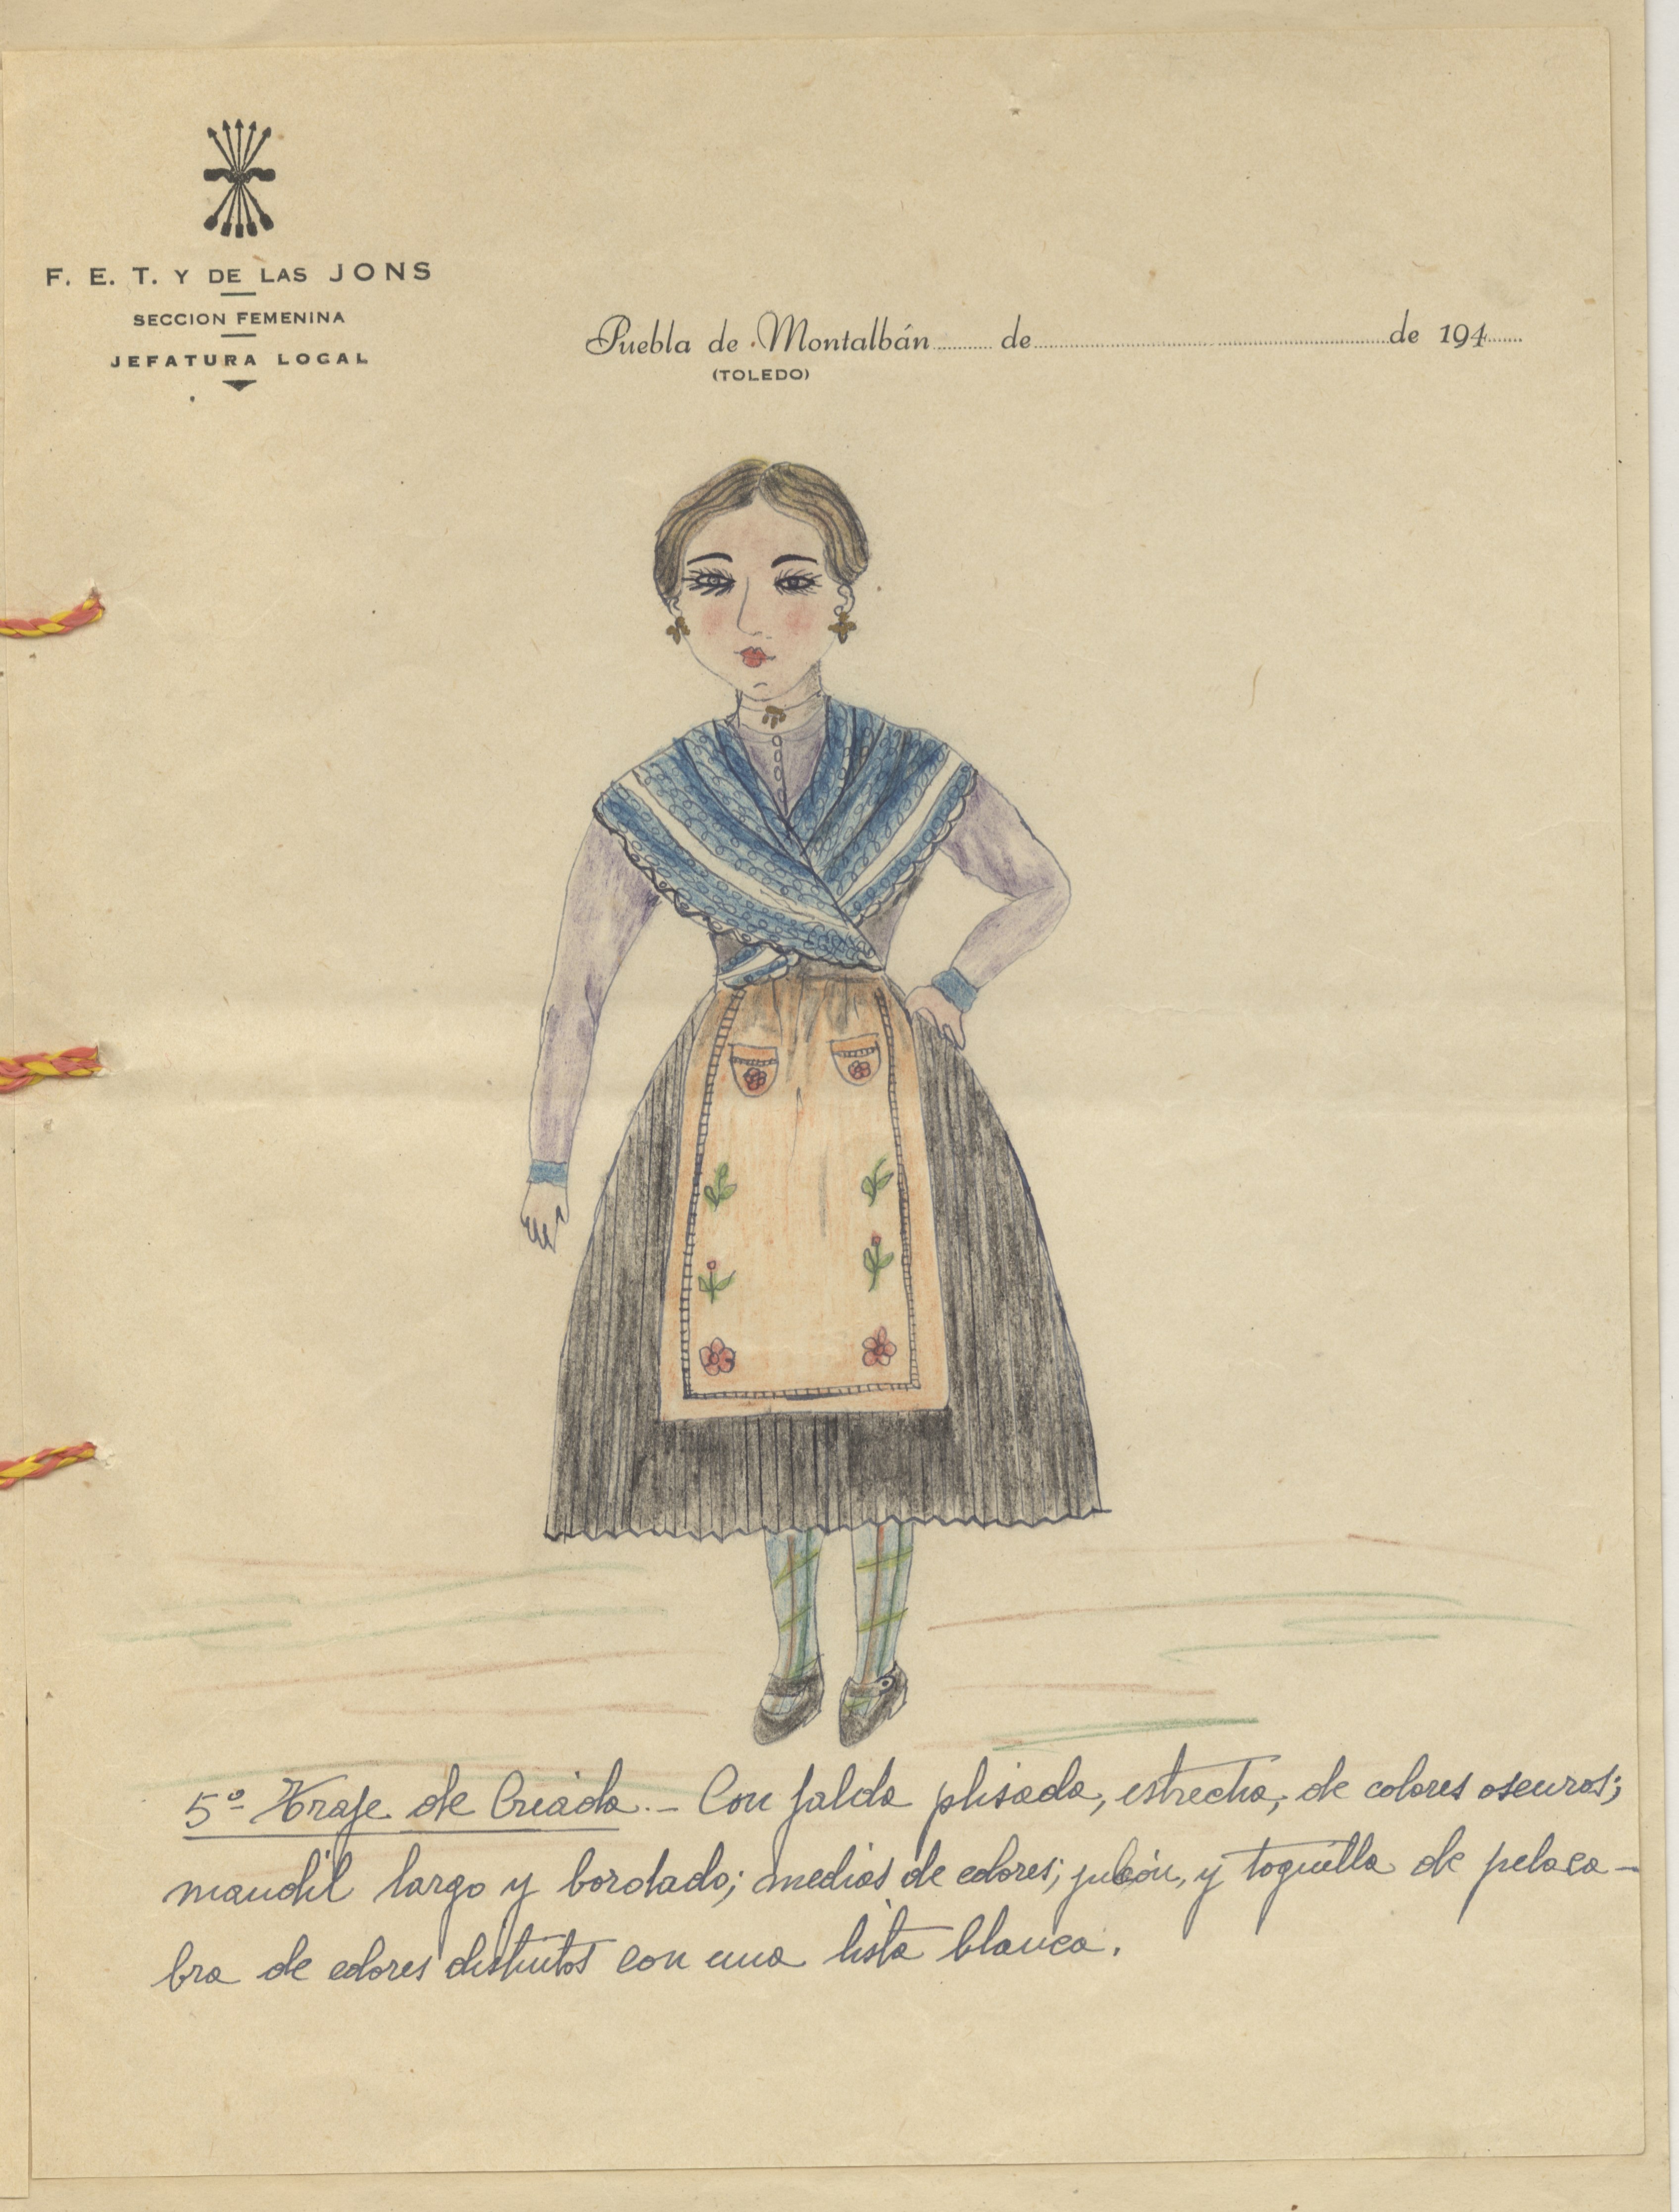 F. E. T. Y DE LAS JONS
SECCION FEMENINA
JEFATURA LOCAL
Puebla de Montalbán.......... de........................................de 194......
(TOLEDO)
5º Traje de Criada.- Con falda plisada, estrecha, de colores oscuros;
mandil largo y bordado; medias de colores; jubón, y toquilla de pelaca-
bra de colores distintos con una lista blanca.